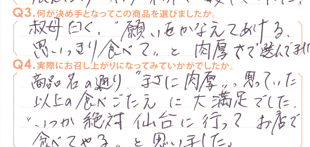 Q3.何が決め手となってこの商品を選びましたか。
叔母曰く、"願いをかなえてあげる。
思いっきり食べて"と肉厚さで選んで
Q4.実際にお召し上がりになってみていかがでしたか。
商品名の通り"まさに肉厚"、思っていた
以上の食べごたえに大満足でした。
"いつか絶対仙台に行ってお店で
食べてやる"と思いました。